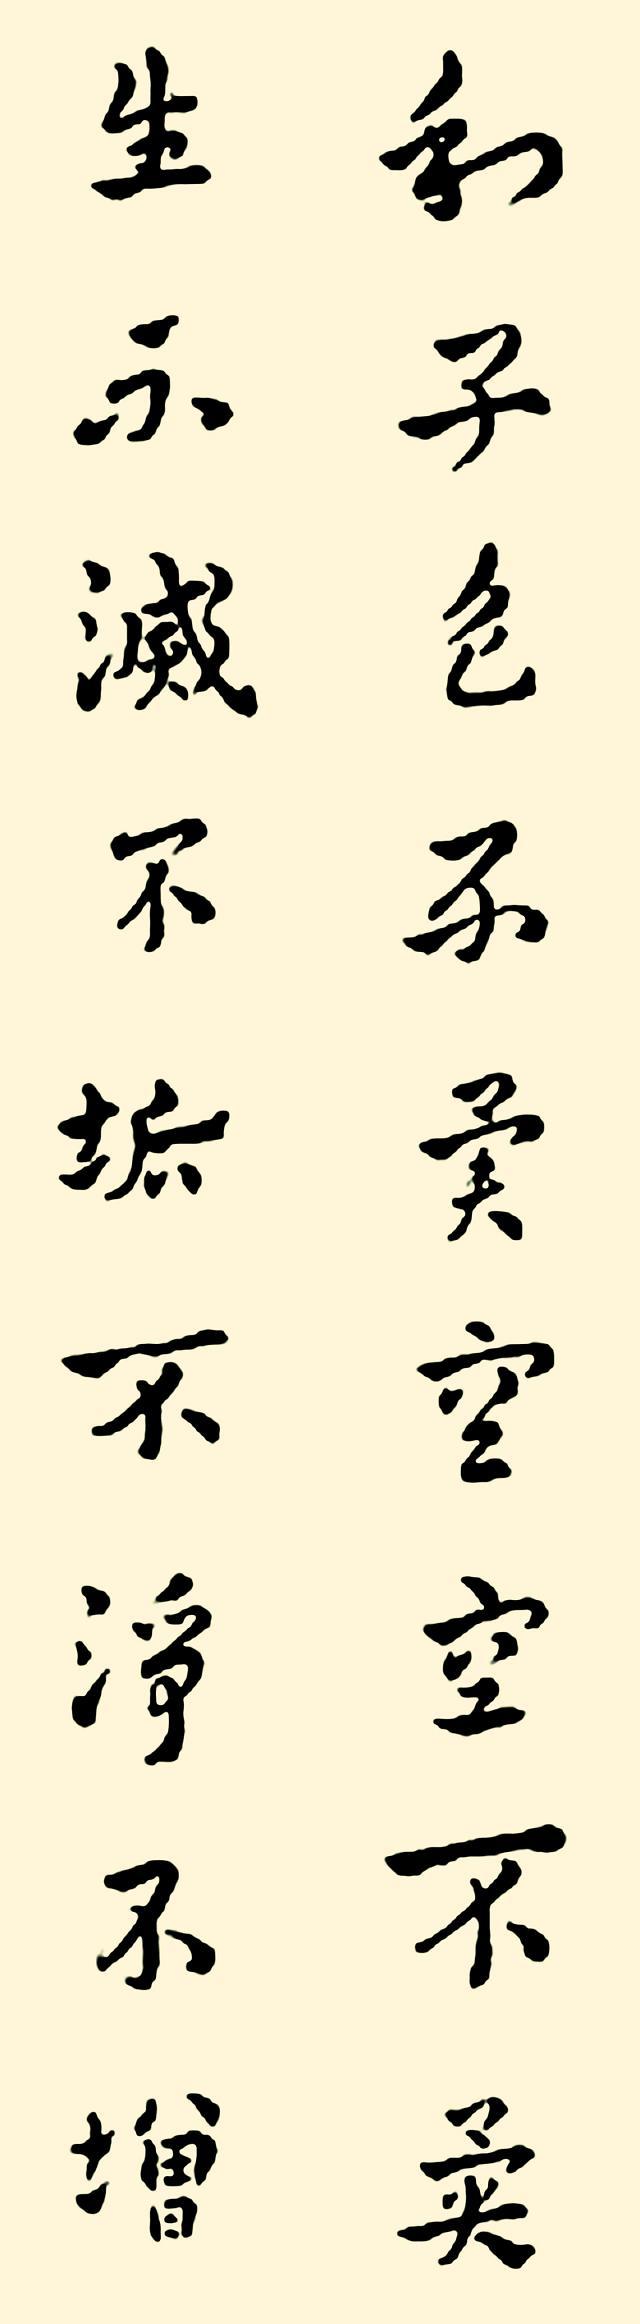 利子色不異空空不異
生不滅不垢不淨不增